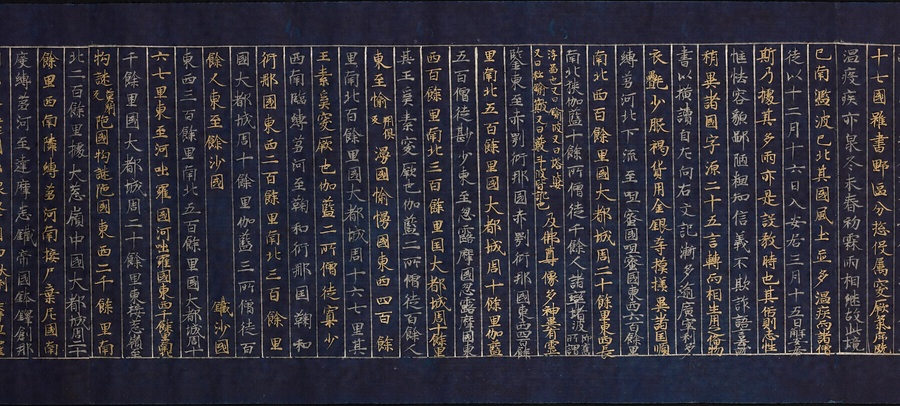 十七國雖畫野區分惣役属突厥氣序既
温疾疫亦衆冬末春初霖雨相継故此境
已南濫波已北其國風土並多温疾而諸僧
徒以十二月十六日入安居三月十五日解安居
斯乃據其多雨亦是設教時也其俗則志性
恇怯容貌鄙陋粗知信義不欺詐語言去就
稍異諸國字源二十五言轉而相生用之俻物
書以横讀自左向右文記漸多逾廣窣利多
衣㲲少服褐貨用金銀等模様異諸國順
縛芻河北下流至呾蜜國呾蜜國東西六百餘里
南北四百餘里國大都城周二十餘里東西長
南北狹伽藍十餘所僧徒千餘人諸窣堵波即舊所謂
浮啚也又曰鍮婆又曰塔婆又曰私鍮簸又曰藪斗波皆訛也及佛尊像多神異靈
鑒東至赤鄂衍那國赤鄂衍那國東西四百餘
里南北五百餘里國大都城周十餘里伽藍
五百僧徒尠少東至忽露摩國忽露摩國東
西百餘里南北三百餘里国大都城周十餘里
其王奚素突厥也伽藍二所僧徒百餘人
東至愉漫國愉愓國東西四百餘
里南北百餘里國大都城周十六七里其
王素奚突厥也伽藍二所僧徒寡少
西南臨縛芻河至鞠和衍那國鞠和
衍那國東西二百餘里南北三百餘里
國大都城周十餘里伽藍三所僧徒百
餘人東至餘沙國鑊沙國
東西三百餘里南北五百餘里國大都城周十
六七里東至河咄羅國河咄羅國東西千餘里南北
千餘里國大都城周二十餘里東接葱嶺至
拘謎陁國拘謎陁國東西二千餘里南
北二百餘里據大葱嶺中國大都城周二十
餘里西南隣縛芻河南接尸棄尼國南
度縛芻河至達摩悉鐵帝國鉢鐸創那